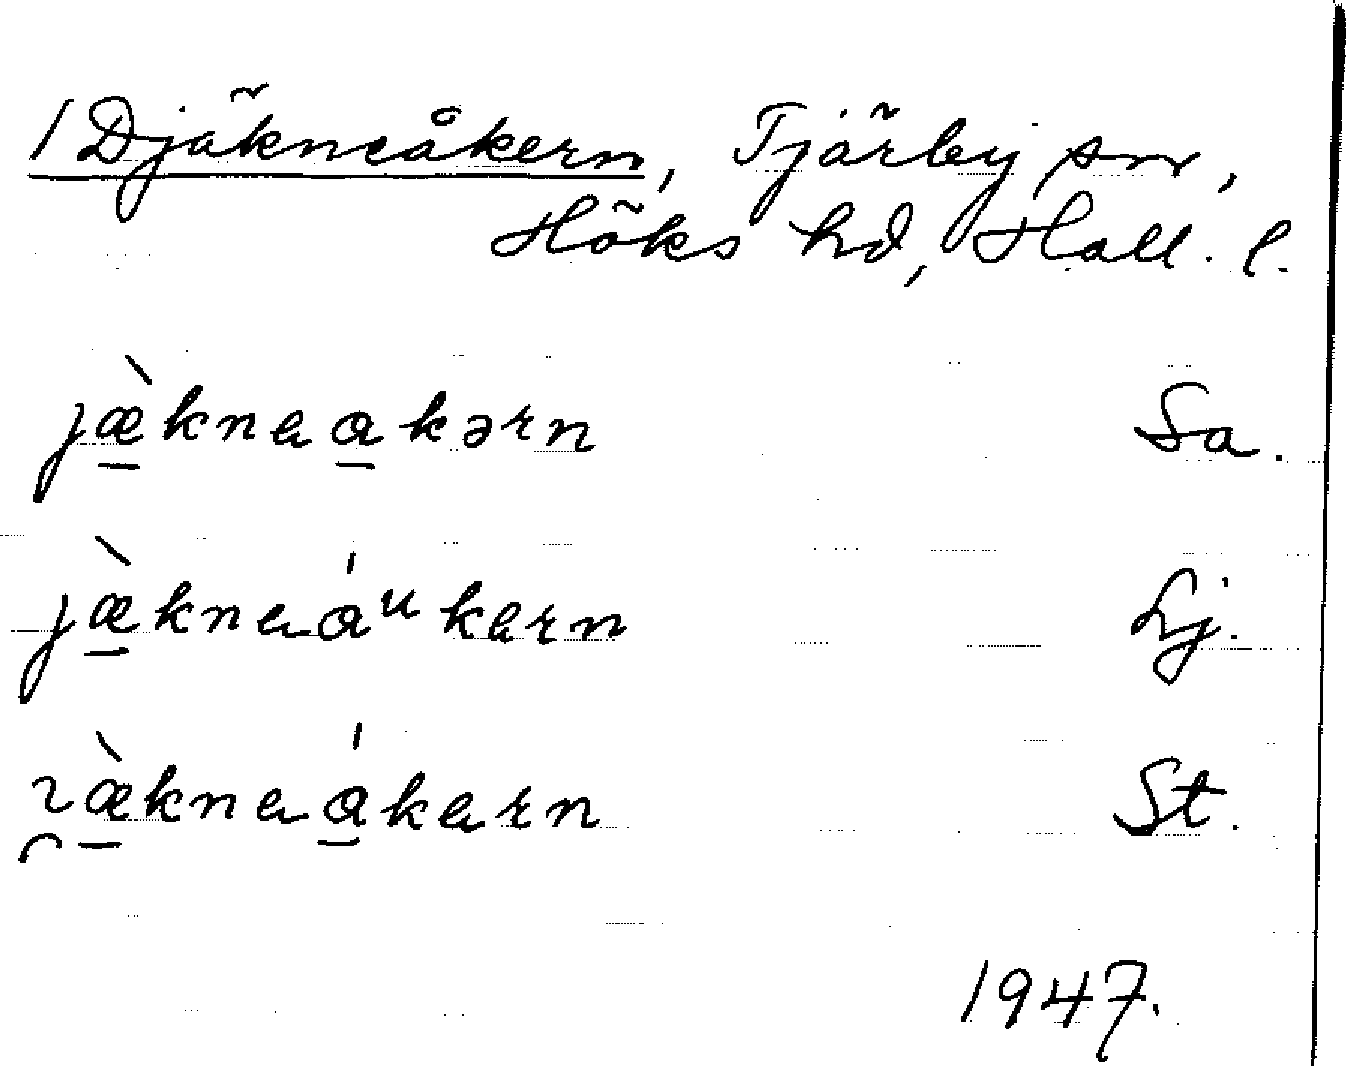 1 Djäkneåkern, Tjärby sn,
Höks hd, Hall. l.
jæ̱̀knea̱kərn Sa.
jæ̱̀kneáᵘkern Lj.
ɿæ̱̀knea̱̍kern St.
1947.